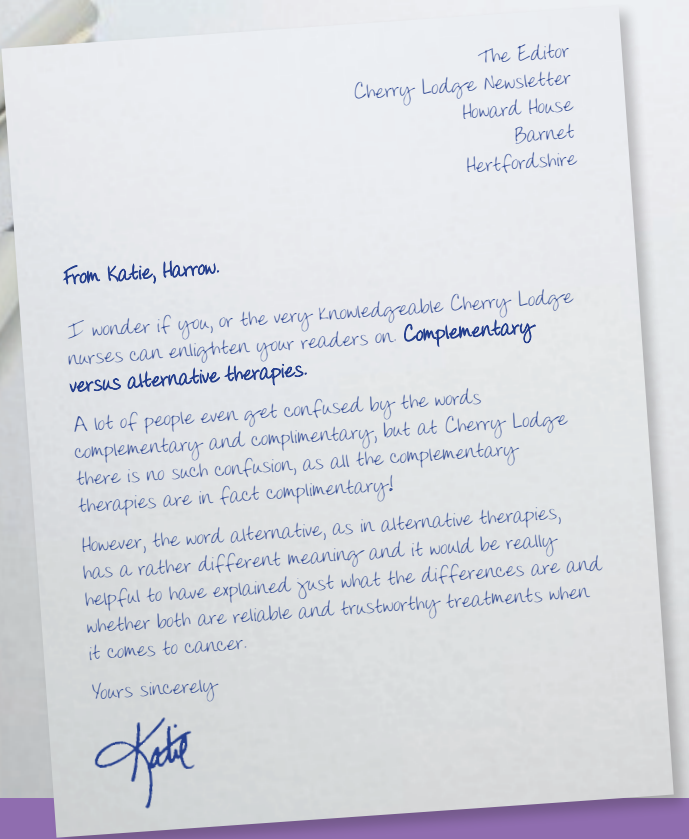 The Editor
Cherry Lodge Newsletter
Howard House
Barnet
Hertfordshire
From Katie, Harrow.
I wonder if you, or the very knowledgeable Cherry Lodge
nurses can enlighten your readers on Complementary
versus alternative therapies.
A lot of people even get confused by the words
complementary and complimentary, but at Cherry Lodge
there is no such confusion, as all the complementary
therapies are in fact complimentary!
However, the word alternative, as in alternative therapies,
has a rather different meaning and it would be really
helpful to have explained just what the differences are and
whether both are reliable and trustworthy treatments when
it comes to cancer.
Yours sincerely
Katie